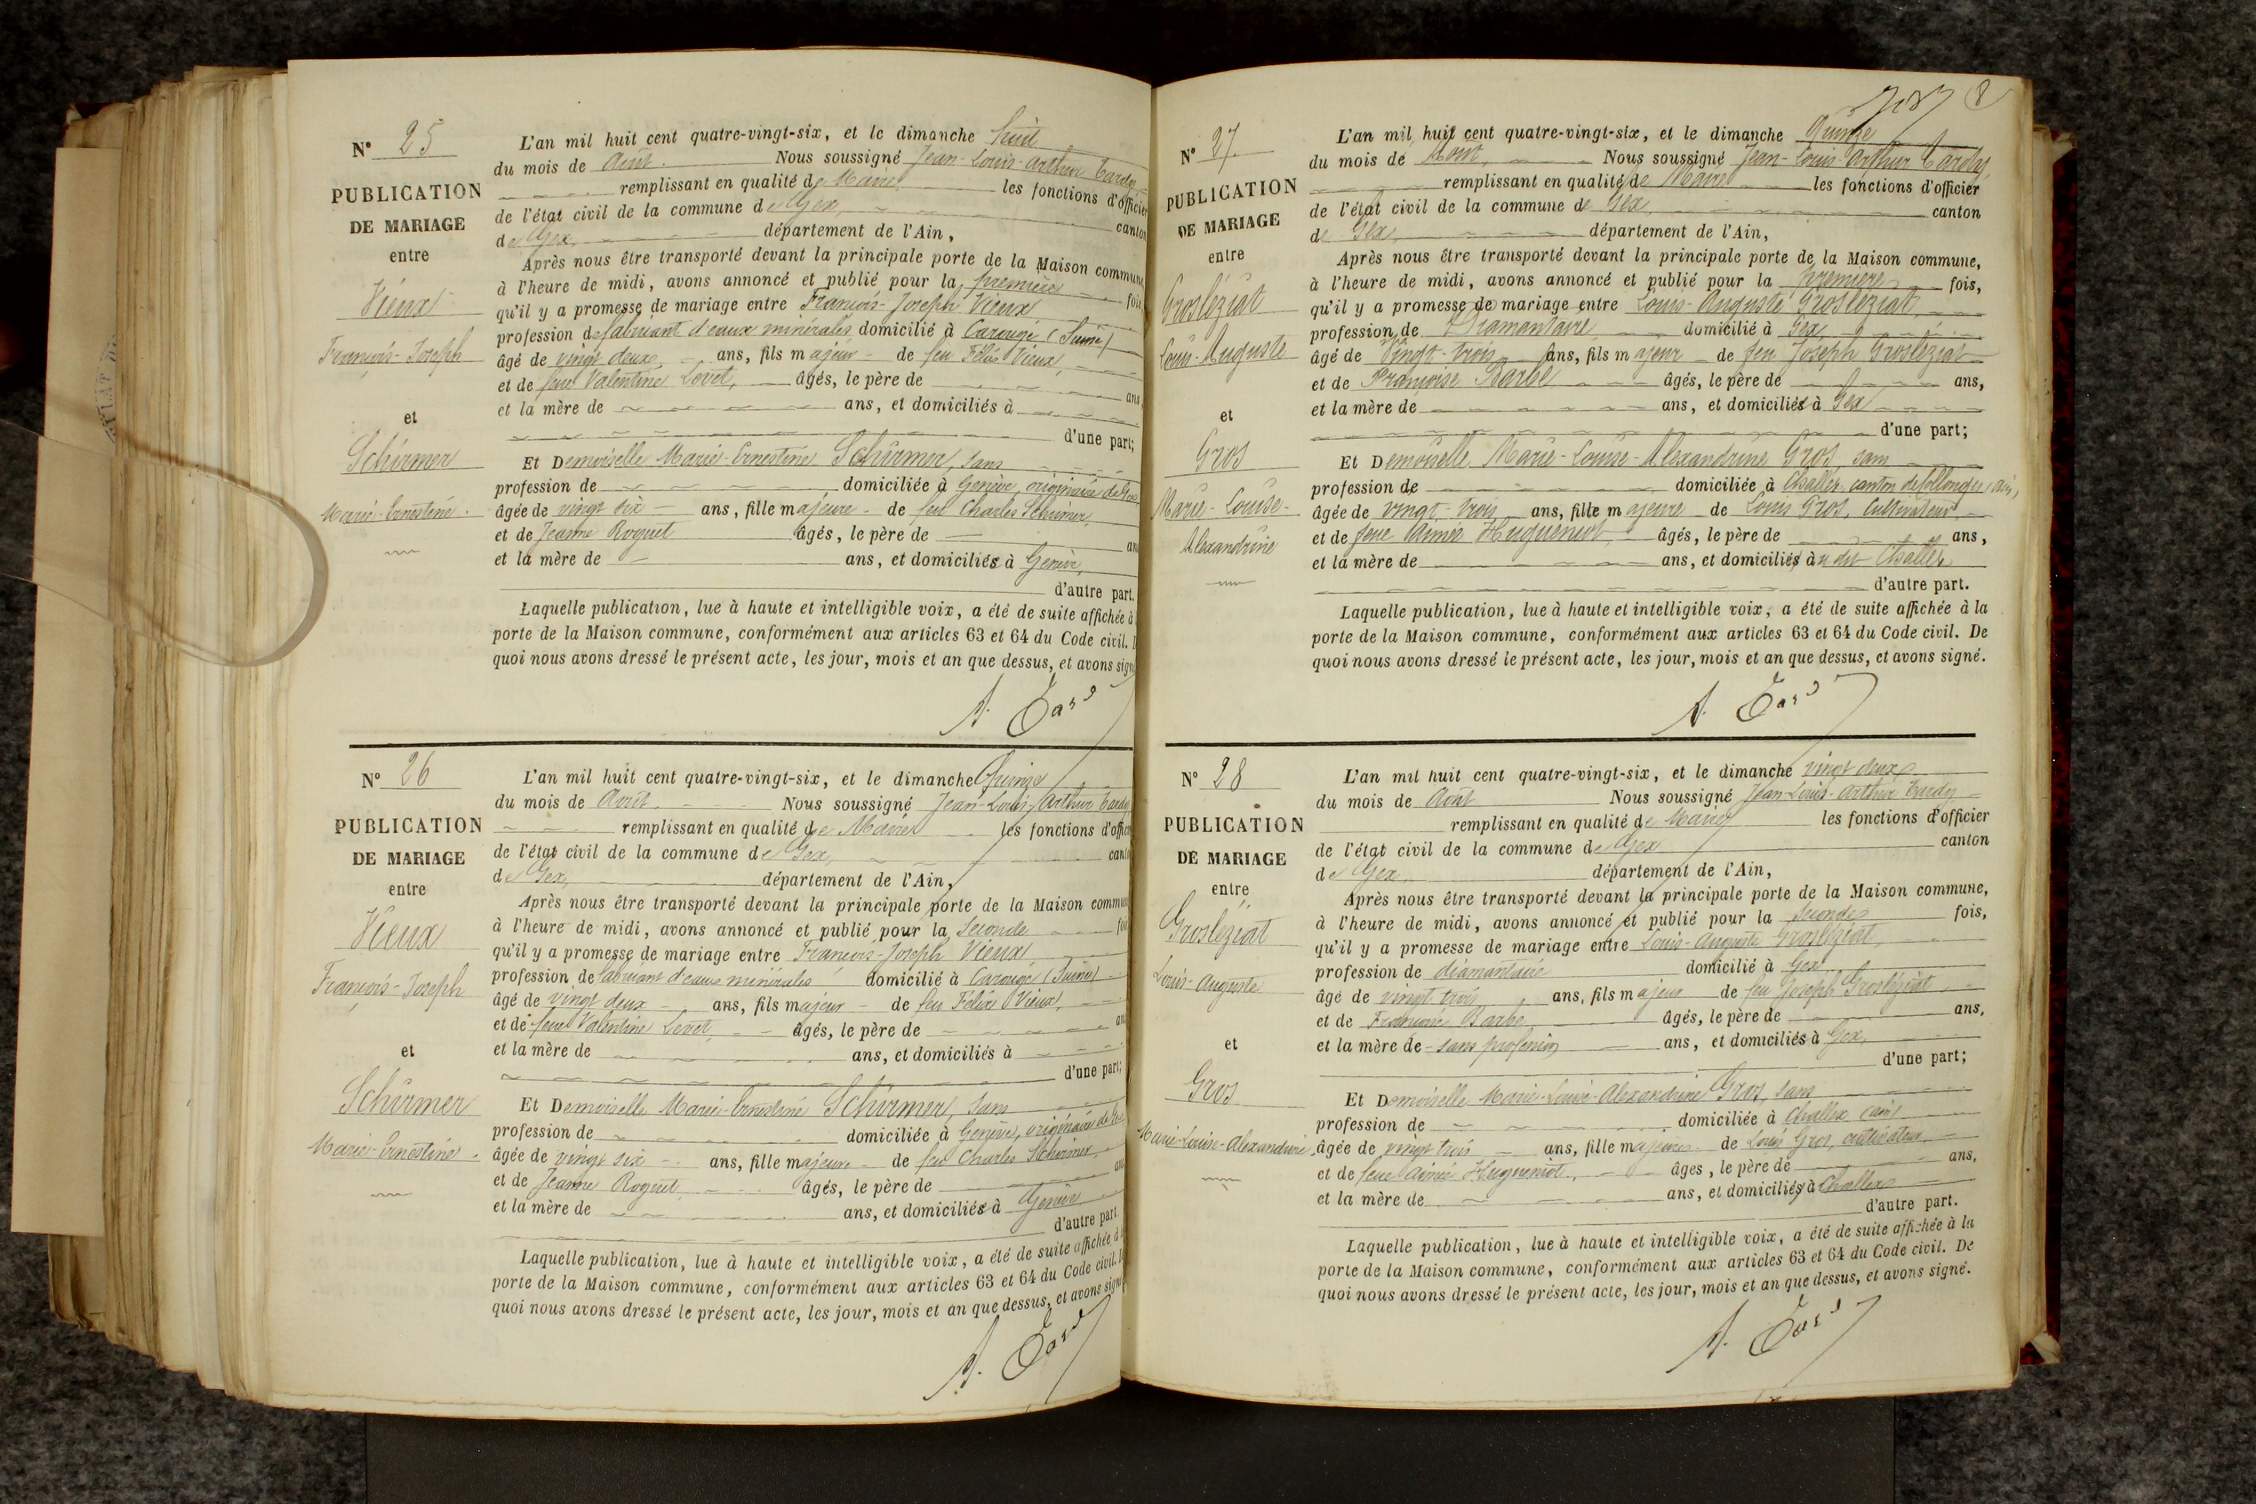 N° 25
PUBLICATION
DE MARIAGE
entre
Vieux
François-Joseph
et
Schirmer
Marie-Ernestine
L'an mil huit cent quatre-vingt-six, et le dimanche huit
du mois de Août Nous soussigné Jean-Louis-Arthur Tardy
remplissant en qualité de Maire les fonctions d'officier
de l'état civil de la commune de Gex, canton
de Gex, département de l'Ain,
Après nous être transporté devant la principale porte de la Maison commune,
à l'heure de midi, avons annoncé et publié pour la première fois
qu'il y a promesse de mariage entre François-Joseph Vieux
profession de fabricant d'eaux minérales domicilié à Carouge (Suisse)
âgé de vingt deux ans, fils majeur de feu Félix Vieux,
et de feue Valentine Lovet, âgés, le père de ans
et la mère de ans, et domiciliés à
d'une part;
Et Demoiselle Marie-Ernestine Schirmer, sans
profession de domiciliée à Genève, originaire de Gex
âgée de vingt six ans, fille majeure de feu Charles Schirmer,
et de Jeanne Roguet âgés, le père de ans
et la mère de ans, et domiciliés à Genève,
d'autre part.
Laquelle publication, lue à haute et intelligible voix, a été de suite affichée à
porte de la Maison commune, conformément aux articles 63 et 64 du Code civil.
quoi nous avons dressé le présent acte, les jour, mois et an que dessus, et avons signé
A. Tardy
N° 26
PUBLICATION
DE MARIAGE
entre
Vieux
François-Joseph
et
Schirmer
Marie-Ernestine
L'an mil huit cent quatre-vingt-six, et le dimanche Quinze
du mois de Août Nous soussigné Jean-Louis-Arthur Tardy
remplissant en qualité de Maire les fonctions d'officier
de l'état civil de la commune de Gex, canton
de Gex, département de l'Ain,
Après nous être transporté devant la principale porte de la Maison commune
à l'heure de midi, avons annoncé et publié pour la seconde fois
qu'il y a promesse de mariage entre François-Joseph Vieux
profession de fabricant d'eaux minérales domicilié à Carouge (Suisse)
âgé de vingt deux ans, fils majeur de feu Félix Vieux,
et de feue Valentine Lovet, âgés, le père de ans
et la mère de ans, et domiciliés à
d'une part;
Et Demoiselle Marie-Ernestine Schirmer, sans
profession de domiciliée à Genève, originaire de Gex
âgée de vingt six ans, fille majeure de feu Charles Schirmer,
et de Jeanne Roguet, âgés, le père de ans
et la mère de ans, et domiciliés à Genève
d'autre part.
Laquelle publication, lue à haute et intelligible voix, a été de suite affichée à
porte de la Maison commune, conformément aux articles 63 et 64 du Code civil.
quoi nous avons dressé le présent acte, les jour, mois et an que dessus, et avons signé
A. Tardy
8
N° 27.
PUBLICATION
DE MARIAGE
entre
Grosléziat
Louis-Auguste
et
Gros
Marie-Louise-
Alexandrine
L'an mil huit cent quatre-vingt-six, et le dimanche Quinze
du mois de Aout, Nous soussigné Jean-Louis-Arthur Tardy,
remplissant en qualité de Maire les fonctions d'officier
de l'état civil de la commune de Gex, canton
de Gex, département de l'Ain,
Après nous être transporté devant la principale porte de la Maison commune,
à l'heure de midi, avons annoncé et publié pour la première fois,
qu'il y a promesse de mariage entre Louis-Auguste Grosléziat,
profession de Diamantaire domicilié à Gex,
âgé de vingt-trois ans, fils majeur de feu Joseph Grosléziat
et de Françoise Barbe âgés, le père de ans,
et la mère de ans, et domiciliés à Gex
d'une part;
Et Demoiselle Marie-Louise-Alexandrine Gros, sans
profession de domiciliée à Challex, canton de Collonges (Ain)
âgée de vingt-trois ans, fille majeure de Louis Gros, Cultivateur,
et de feue Aimée Hugueniot, âgés, le père de ans,
et la mère de ans, et domiciliés à u dit Challex
d'autre part.
Laquelle publication, lue à haute et intelligible voix, a été de suite affichée à la
porte de la Maison commune, conformément aux articles 63 et 64 du Code civil. De
quoi nous avons dressé le présent acte, les jour, mois et an que dessus, et avons signé.
A. Tardy
N° 28
PUBLICATION
DE MARIAGE
entre
Grosléziat
Louis-Auguste
et
Gros
Marie-Louise-Alexandrine
L'an mil huit cent quatre-vingt-six, et le dimanche vingt deux
du mois de Août Nous soussigné Jean-Louis-Arthur Tardy
remplissant en qualité de Maire les fonctions d'officier
de l'état civil de la commune de Gex canton
de Gex département de l'Ain,
Après nous être transporté devant la principale porte de la Maison commune,
à l'heure de midi, avons annoncé et publié pour la seconde fois,
qu'il y a promesse de mariage entre Louis-Auguste Grosléziat,
profession de diamantaire domicilié à Gex
âgé de vingt trois ans, fils majeur de feu Joseph Grosléziat
et de Françoise Barbe âgés, le père de ans,
et la mère de sans profession ans, et domiciliés à Gex,
d'une part;
Et Demoiselle Marie-Louise-Alexandrine Gros, sans
profession de domiciliée à Challex (Ain)
âgée de vingt trois ans, fille majeure de Louis Gros, cultivateur,
et de feue Aimée Hugueniot, âges, le père de ans,
et la mère de ans, et domiciliés à Challex
d'autre part.
Laquelle publication, lue à haute et intelligible voix, a été de suite affichée à la
porte de la Maison commune, conformément aux articles 63 et 64 du Code civil. De
quoi nous avons dressé le présent acte, les jour, mois et an que dessus, et avons signé.
A. Tardy